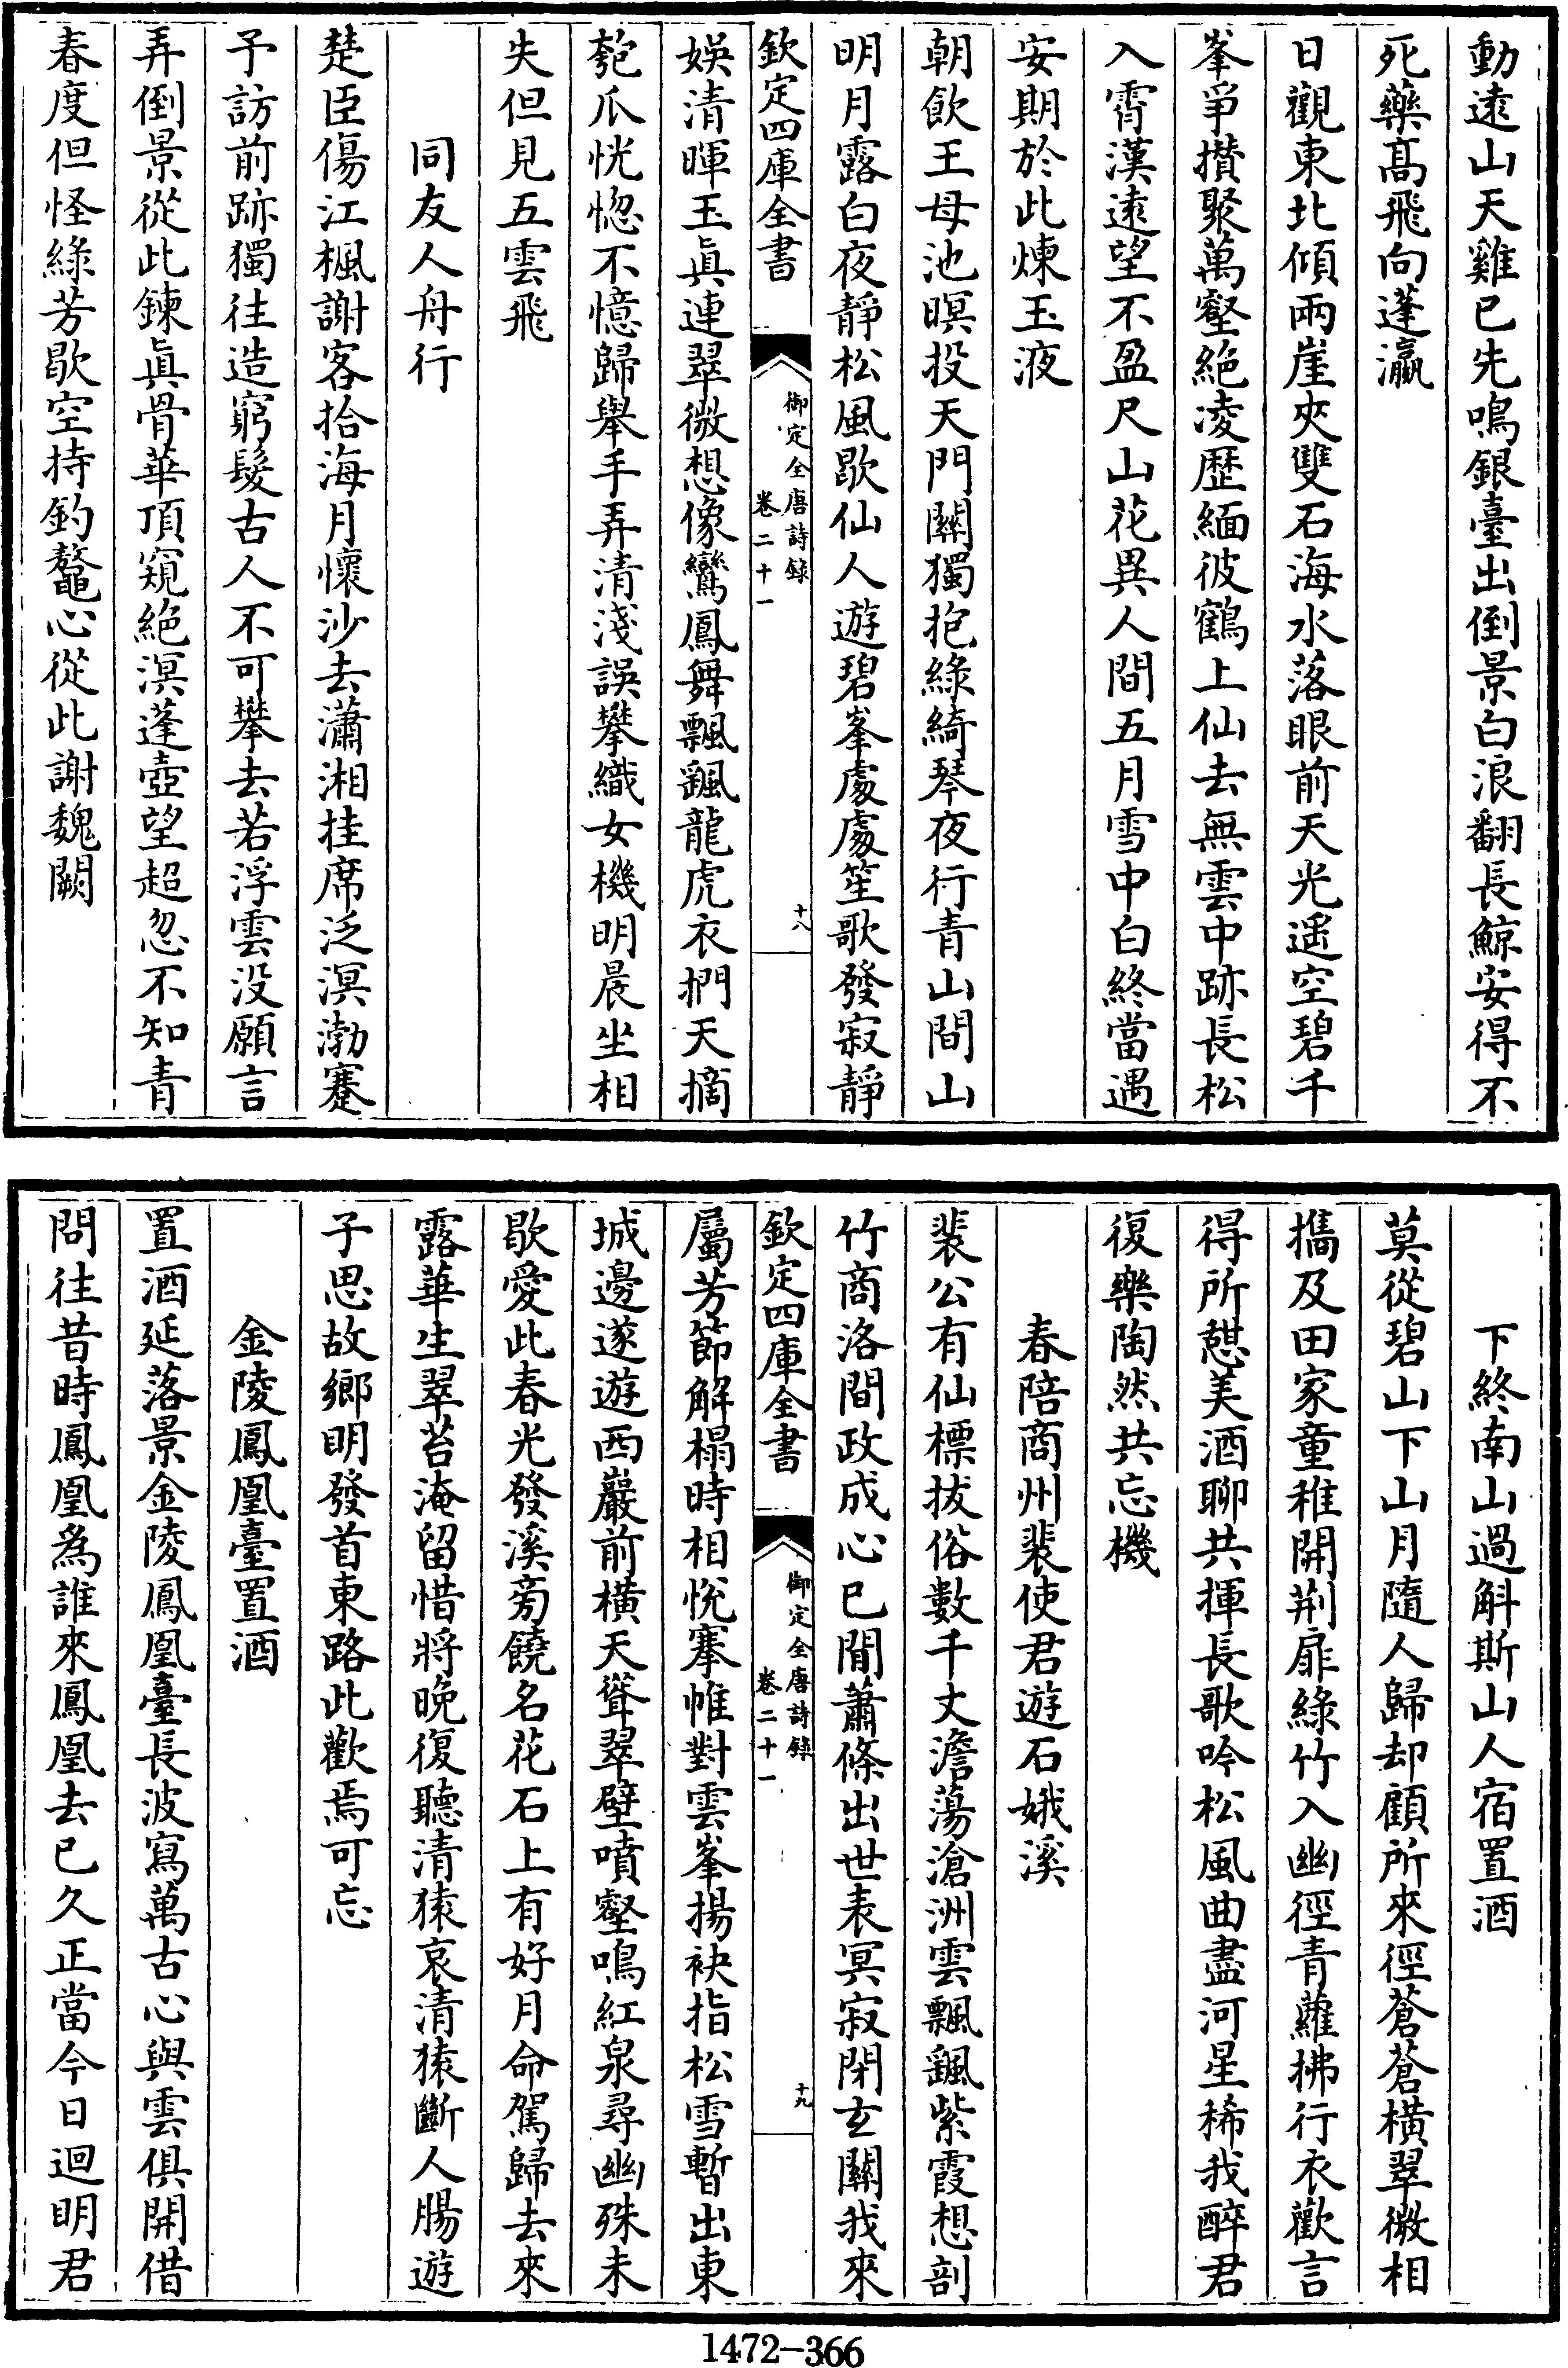 動遠山天雞已先鳴銀臺出倒景白浪翻長鯨安得不
死藥髙飛向蓬瀛
日觀東北傾兩崖夾雙石海水落眼前天光遥空碧千
峯爭攅聚萬壑絶凌歷緬彼鶴上仙去無雲中跡長松
入霄漢逺望不盈尺山花異人間五月雪中白終當遇
安期於此煉玉液
朝飲王母池暝投天門闗獨抱綠綺琴夜行青山間山
明月露白夜靜松風歇仙人遊碧峯處處笙歌發寂靜
欽定四庫全書
御定全唐詩録
卷二十一
十八
娛清暉玉眞連翠微想像鸞鳳舞飄颻龍虎衣捫天摘
匏瓜恍惚不憶歸舉手弄清淺誤攀織女機明晨坐相
失但見五雲飛
同友人舟行
楚臣傷江楓謝客拾海月懷沙去瀟湘挂席泛溟渤蹇
予訪前跡獨往造窮髮古人不可攀去若浮雲没願言
弄倒景從此鍊眞骨華頂窺絶溟蓬壺望超忽不知青
春度但怪綠芳歇空持釣鼇心從此謝魏闕
下終南山過斛斯山人宿置酒
莫從碧山下山月隨人歸却顧所來徑蒼蒼橫翠微相
攜及田家童稚開荆扉綠竹入幽徑青蘿拂行衣歡言
得所憇美酒聊共揮長歌吟松風曲盡河星稀我醉君
復樂陶然共忘機
春陪商州裴使君遊石娥溪
裴公有仙標拔俗數千丈澹蕩滄洲雲飄颻紫霞想剖
竹商洛間政成心已閒蕭條出世表冥寂閉玄闗我來
欽定四庫全書
御定全唐詩録
卷二十一
十九
屬芳節解榻時相悅搴帷對雲峯揚袂指松雪暫出東
城邊遂遊西巖前横天聳翠壁噴壑鳴紅泉尋幽殊未
歇愛此春光發溪旁饒名花石上有好月命駕歸去來
露華生翠苔淹留惜將晩復聽清猿哀清猿斷人腸遊
子思故鄉明發首東路此歡焉可忘
金陵鳳凰臺置酒
置酒延落景金陵鳳凰臺長波寫萬古心與雲俱開借
問往昔時鳳凰為誰來鳳凰去已久正當今日迴明君
1472-366